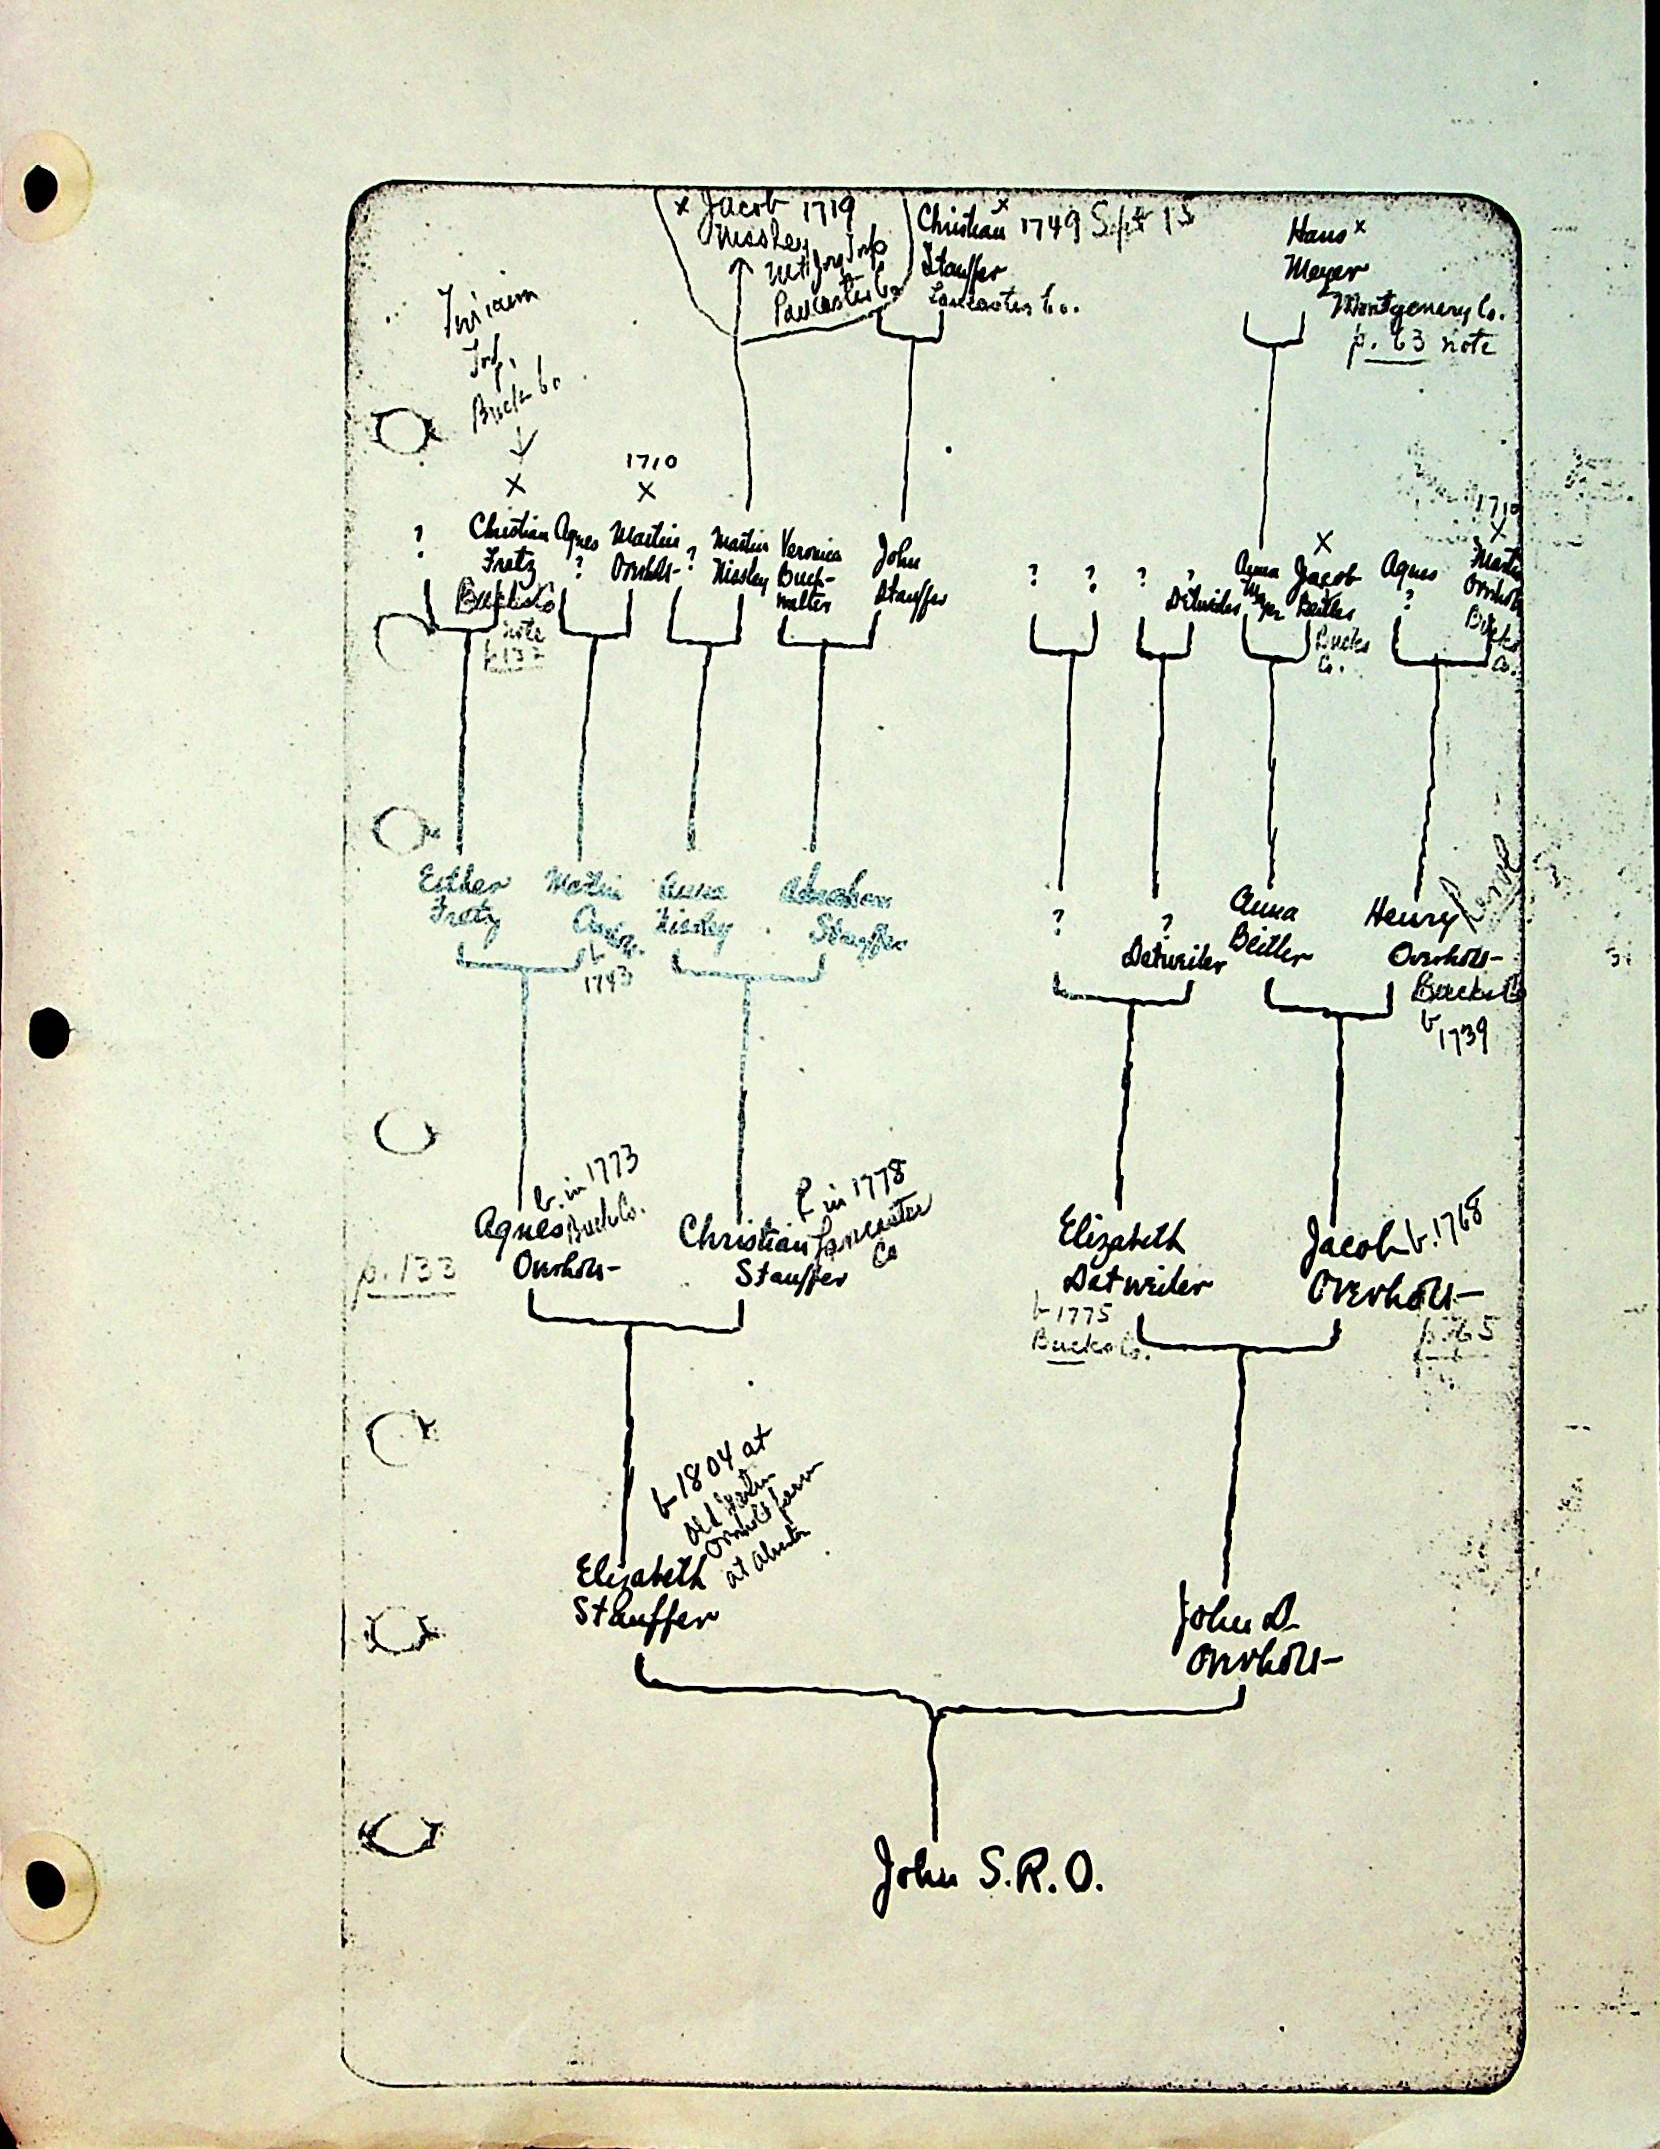 x Jacob 1719
Nissley
Mt Joy Twp
Lancaster Co
Christian x 1749 Sept 15
Stauffer
Lancaster Co.
Hans x
Meyer
Montgomery Co.
p. 63 note
Tinicum
Twp.
Bucks Co
↓
x
1710
x
?
Christian
Fretz
Bucks Co
note
p 133
Agnes
?
Martin
Overholt
?
Martin
Nissley
Veronica
Buck-
walter
John
Stauffer
?
?
?
?
Detwiler
Anna
Meyer
x
Jacob
Beitler
Bucks
Co.
Agnes
?
1710
x
Martin
Overholt
Bucks
Co.
Esther
Fretz
Martin
b
1743
Anna
Nissley
Abraham
Stauffer
?
?
Detweiler
Anna
Beitler
Henry
Overholt
Bucks Co
b 1739
b. in 1773
Agnes Bucks Co.
Overholt
p. 133
b in 1778
Christian Lancaster
Stauffer Co
Elizabeth
Detweiler
b 1775
Bucks Co.
Jacob b. 1768
Overholt
p. 65
b 1804 at
old
Overholt farm
at
Elizabeth
Stauffer
John D.
Overholt
John S.R.O.